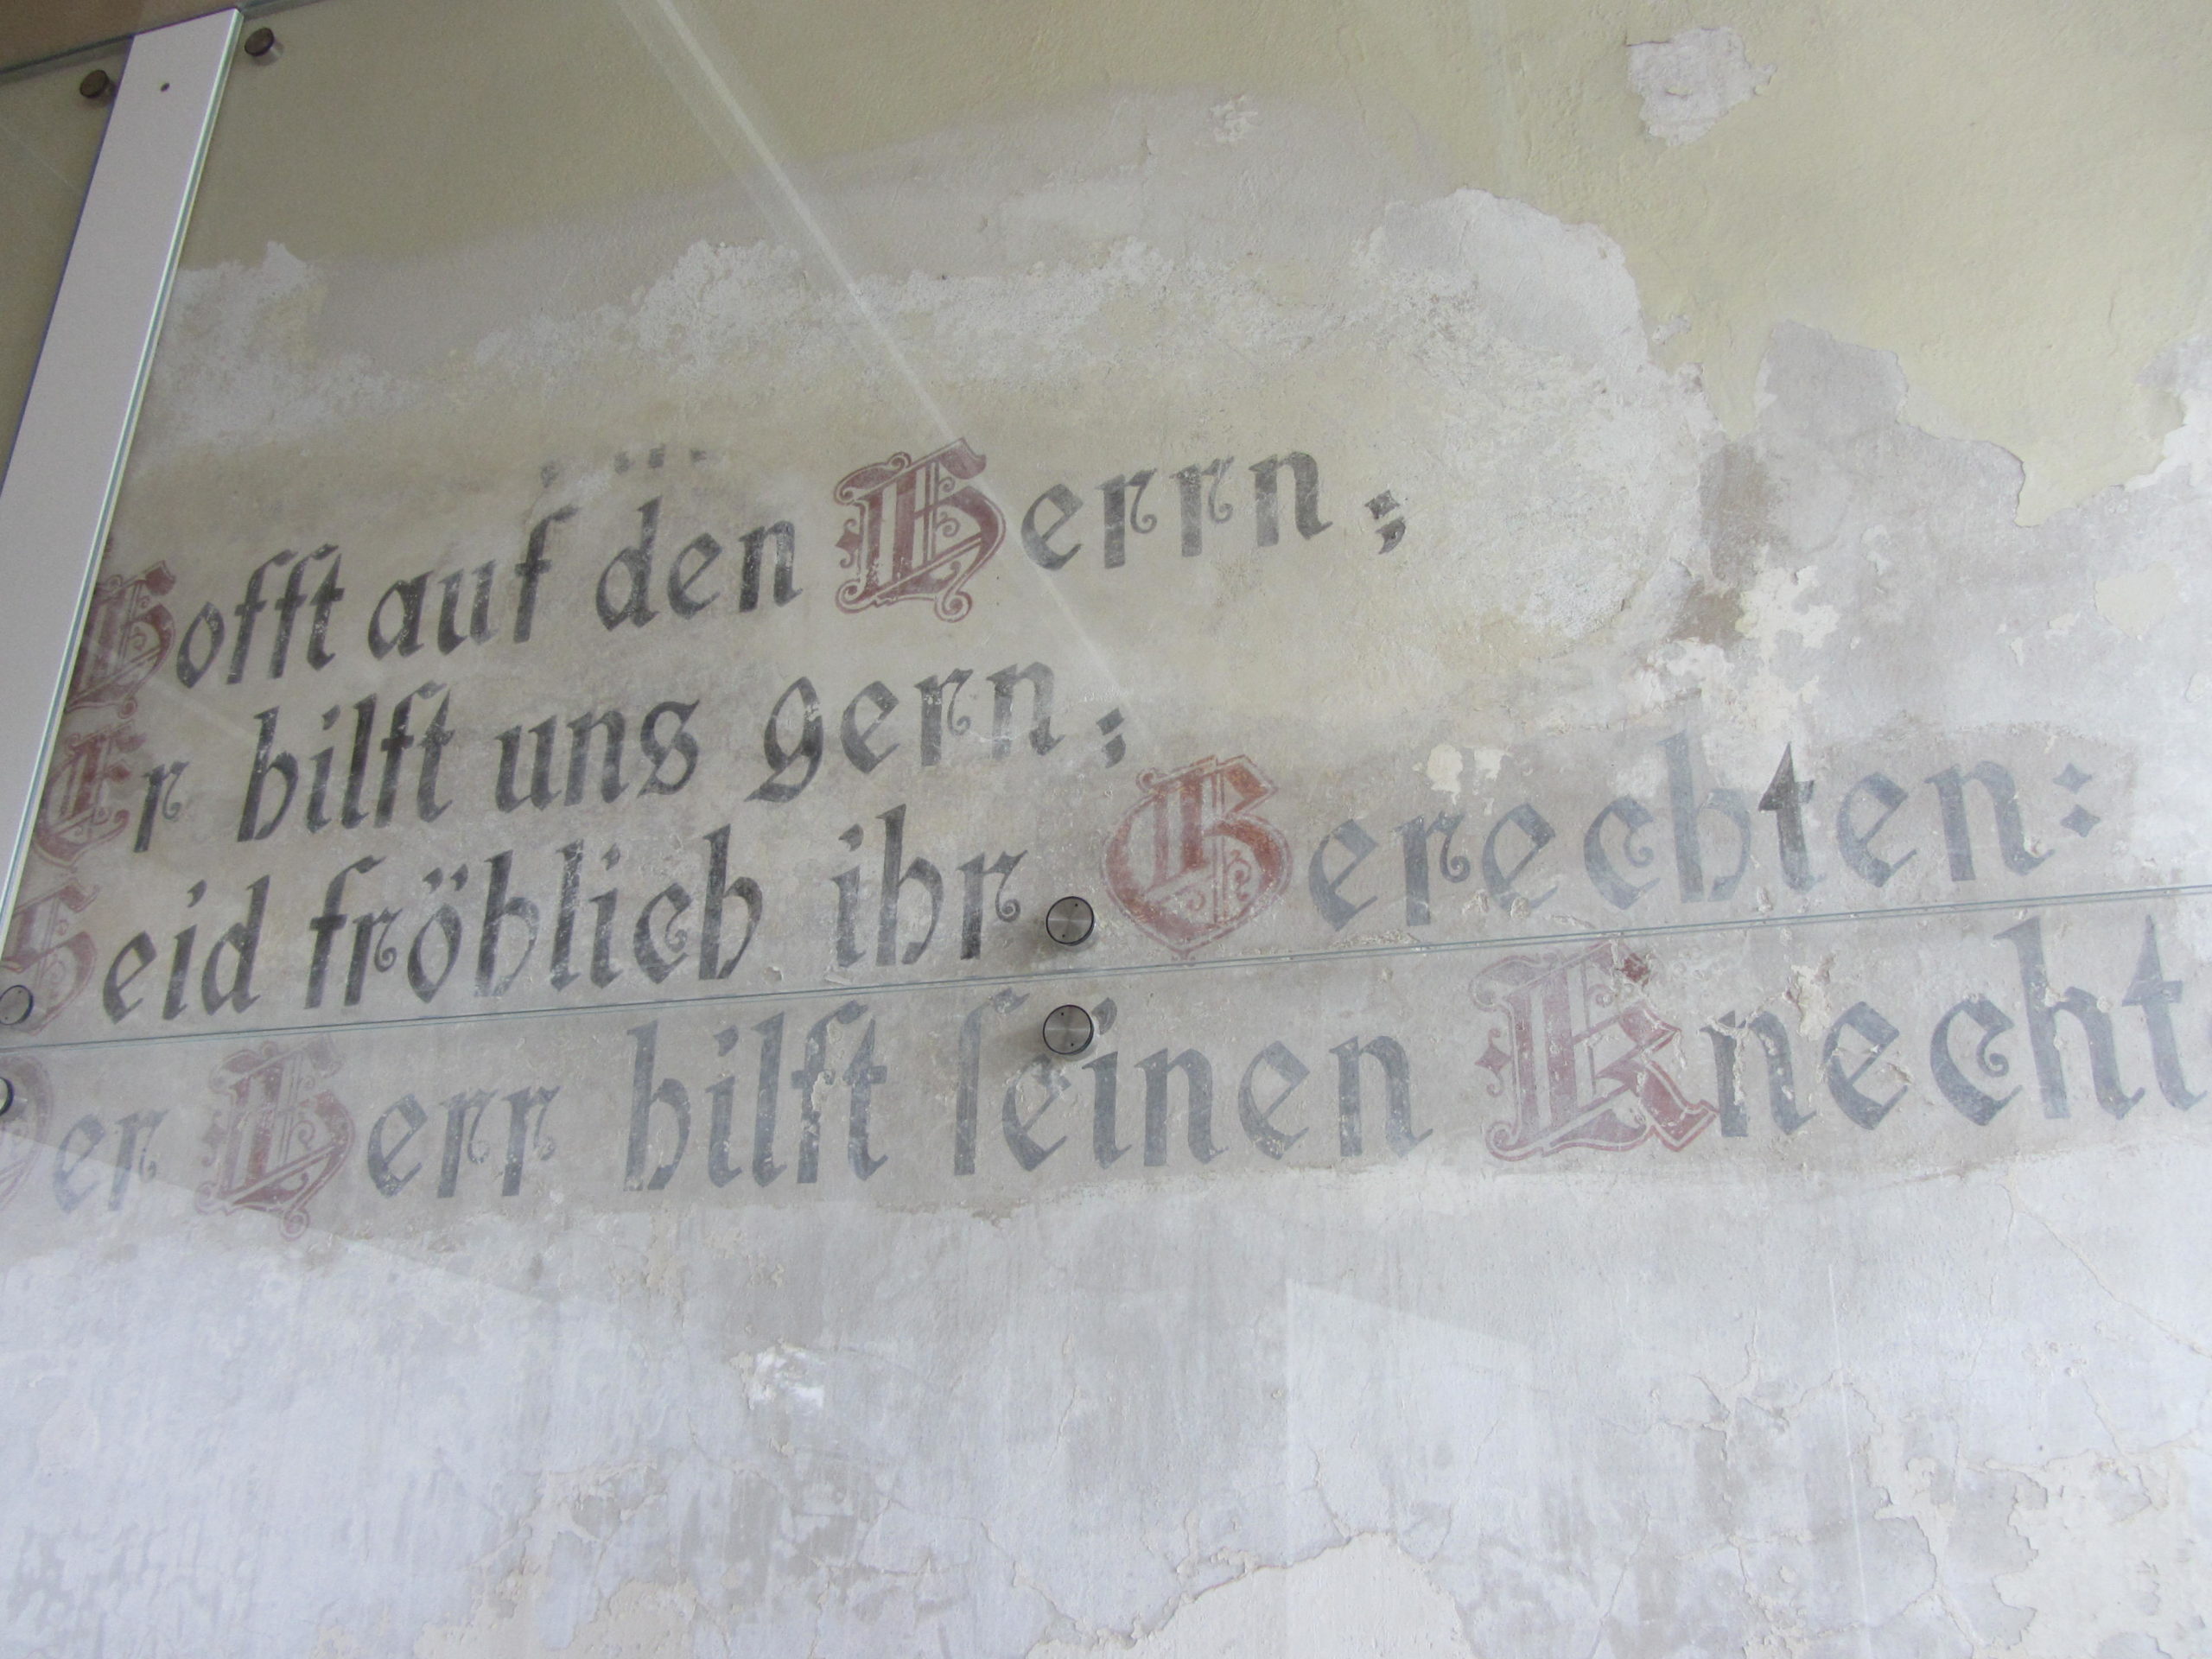 Hofft auf den Herrn;
Er hilft uns gern;
Seid fröhlich ihr Gerechten:
Der Herr hilft seinen Knecht